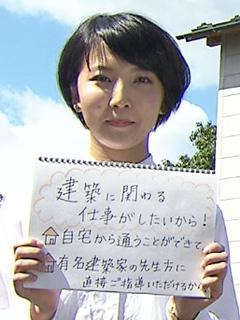 建築に関わる
仕事がしたいから!
自宅から通うことができて、
有名建築家の先生方に
直接ご指導いただけるから